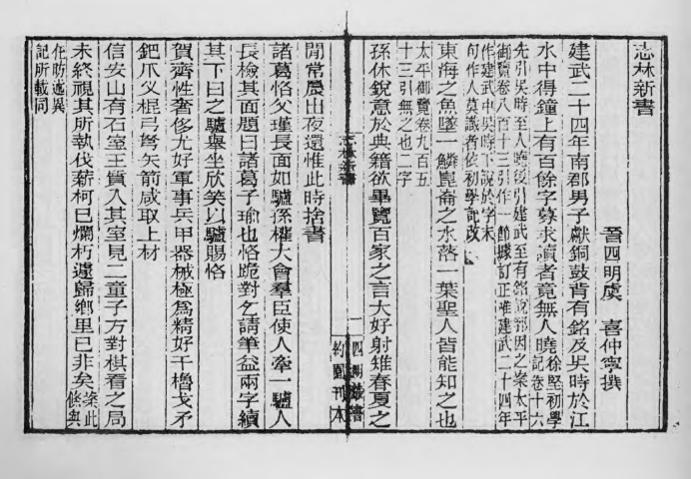 志林新書
晉四明虞　喜仲寧撰
建武二十四年南郡男子獻銅鼓背有銘及吳時於江
水中得鐘上有百餘字募求讀者竟無人曉徐堅初學
記卷十六
先引吳時至人曉後引建武至有銘說部因之案太平
御覽卷八百十三引作一節據訂正惟建武二十四年
作建武中吳時下說於字末
句作人莫識者依初學記改
東海之魚墜一鱗崑崙之水落一葉聖人皆能知之也
太平御覽卷九百五
十三引無之也二字
孫休銳意於典籍欲畢覽百家之言大好射雉春夏之
志林新書
一
四明叢書
約園刊本
閒常晨出夜還惟此時捨書
諸葛恪父瑾長面如驢孫權大會羣臣使人牽一驢入
長檢其面題曰諸葛子瑜也恪跪對乞請筆益兩字續
其下曰之驢舉坐欣笑以驢賜恪
賀齊性奢侈尤好軍事兵甲器械極爲精好干櫓戈矛
鈀爪义棍弓弩矢箭咸取上材
信安山有石室王質入其室見二童子方對棋看之局
未終視其所執伐薪柯已爛朽遽歸鄉里已非矣案此
條與
任昉述異
記所載同